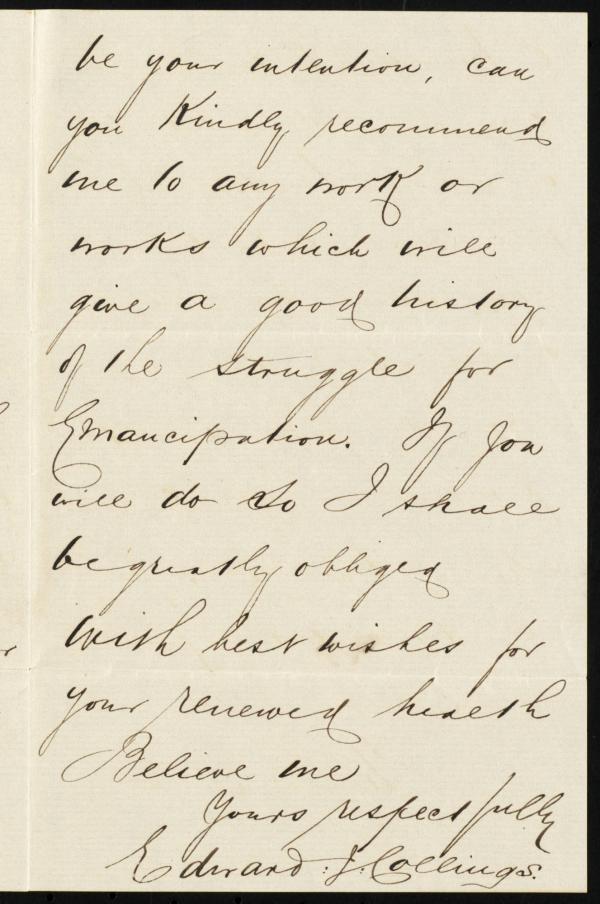 be your intention, can
you Kindly recommend
me to any work or
works which will
give a good history
of the struggle for
Emancipation. If you
will do so I shall
be greatly obliged
With best wishes for
your renewed health
Believe me
Yours respectfully
Edward J. Collings.